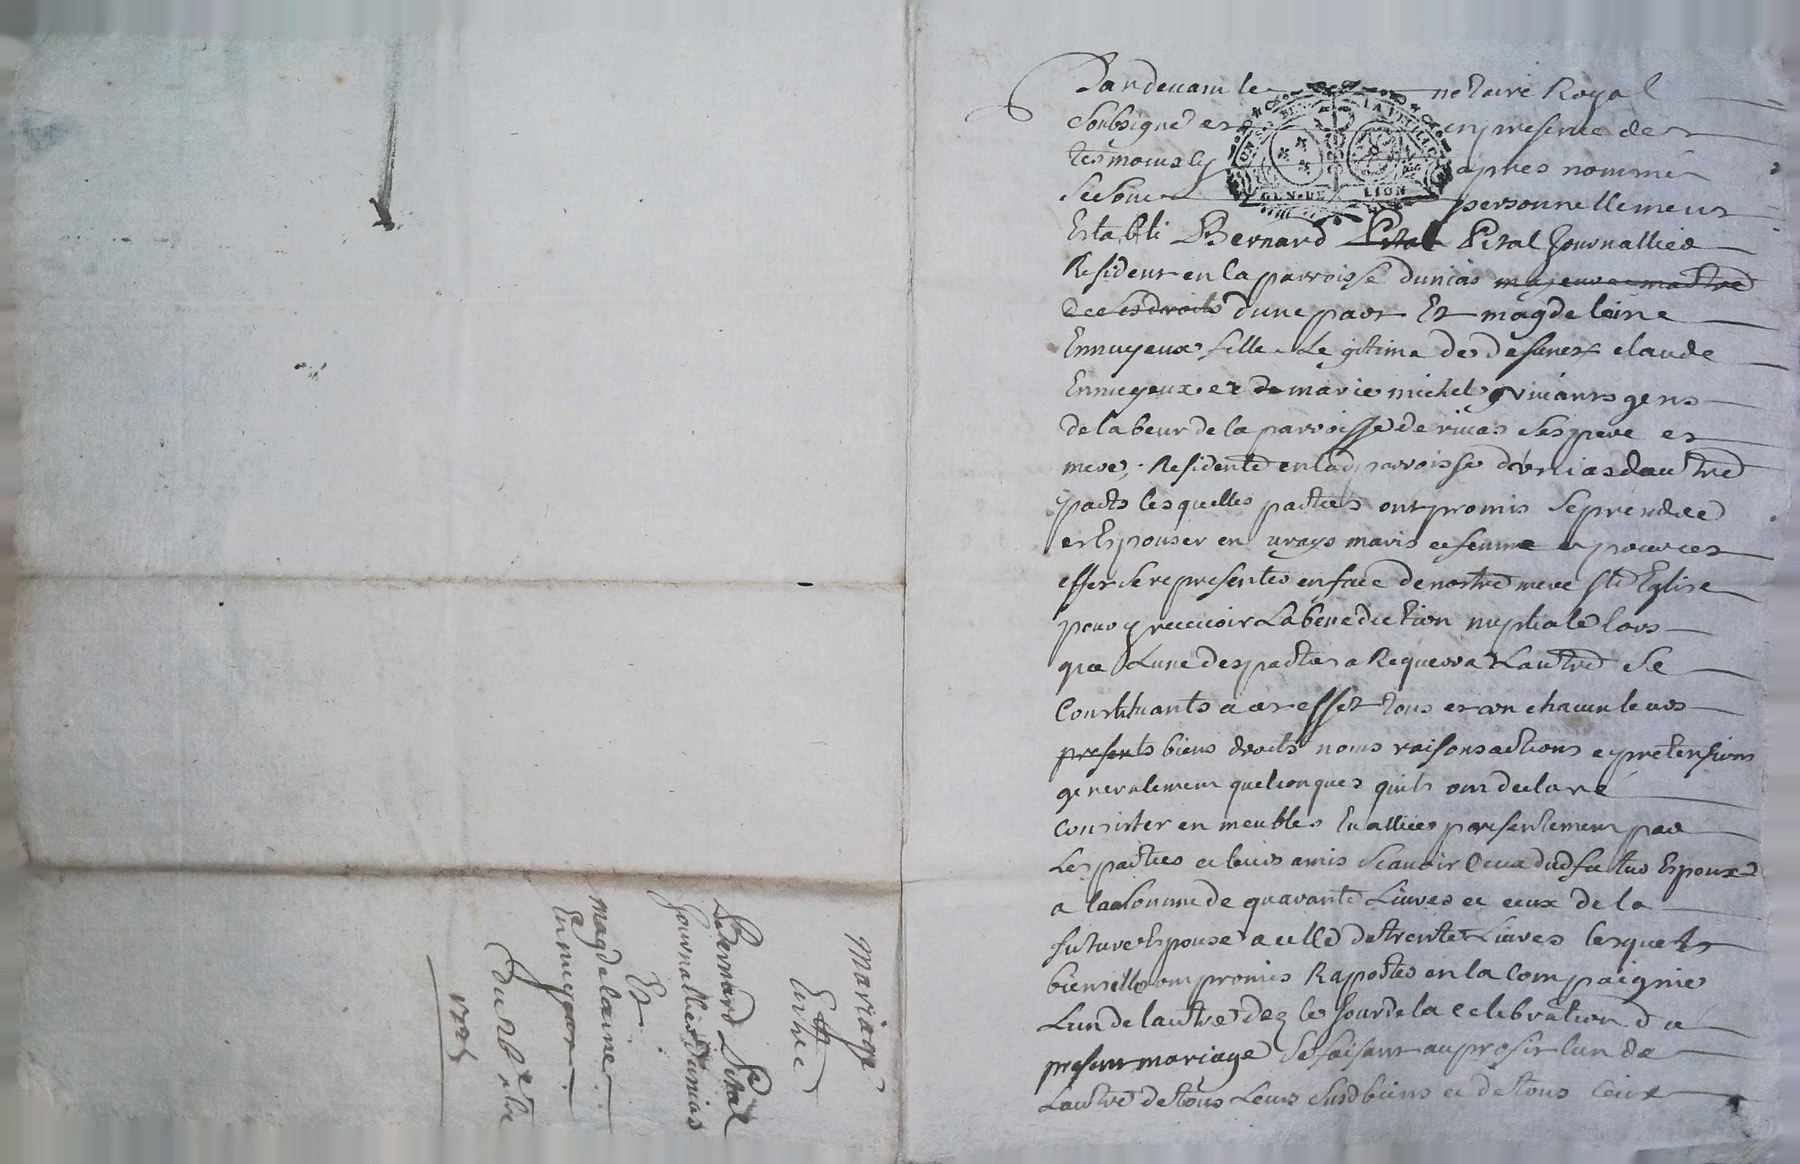 Mariage
Entre
Bernard Pital
Journallier d'unias
Et
magdelaine
Ennuyeux
Du
Pardevant le notaire Royal
Soubsigné et en presence des
tesmoins cy apres nommés
personnellement
Establi Bernard Pital Pital Journallier
Resident en la parroisse dunias
de ses droits dune part Et magdeleine
Ennuyeux fille Legitime de defunct claude
Ennuyeux et de marie michel vivants gens
de labeur de la parroisse de rivas ses pere et
mere, Residente en lad parroisse d'unias dautre
part lesquelles parties ont promis se prendre
et Espouser en vrays maris et femme et pour cet
effet se representer en face de nostre mere Ste Eglise
pour y recevoir La benediction nuptiale lors
que Lune des parties a Requerra Lautre se
Constituants a cet effet tous et un chacun leurs
presents biens droits noms raisons actions et pretensions
generalement quelconques quils ont declaré
consister en meubles Evalliees presentement par
Les parties et leurs amis scavoir Ceux dud futur Espoux
a la somme de quarante Livres et ceux de la
future Espouse a celle de trente Livres lesquels
biens ils ont promis Raporter en la Compaignie
Lun de lautre dez le Jour de la celebration du
present mariage se faisant au profit lun de
Lautre de tous Leurs susd biens et de tous Ceux